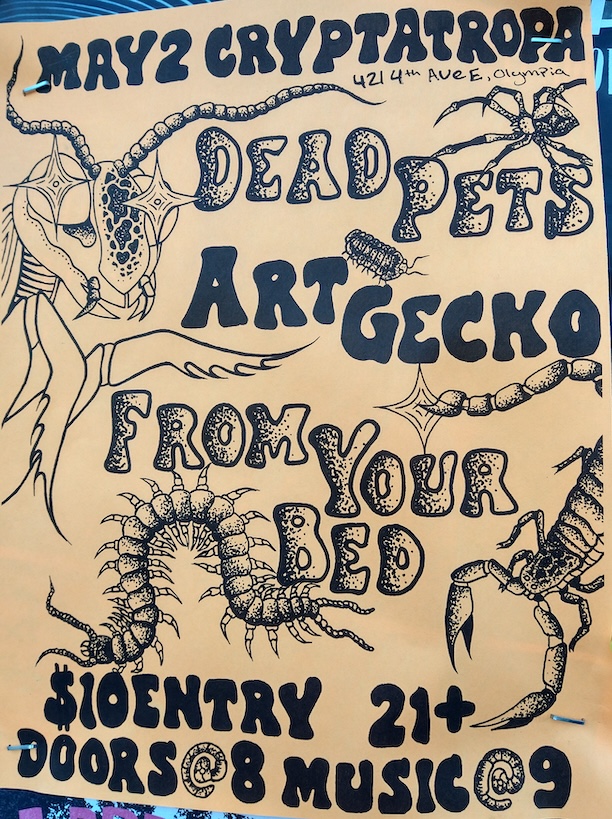 MAY 2 CRYPTATROPA
421 4th Ave E, Olympia
DEAD PETS
ART GECKO
FROM YOUR BED
$10 ENTRY 21+
DOORS@8 MUSIC@9